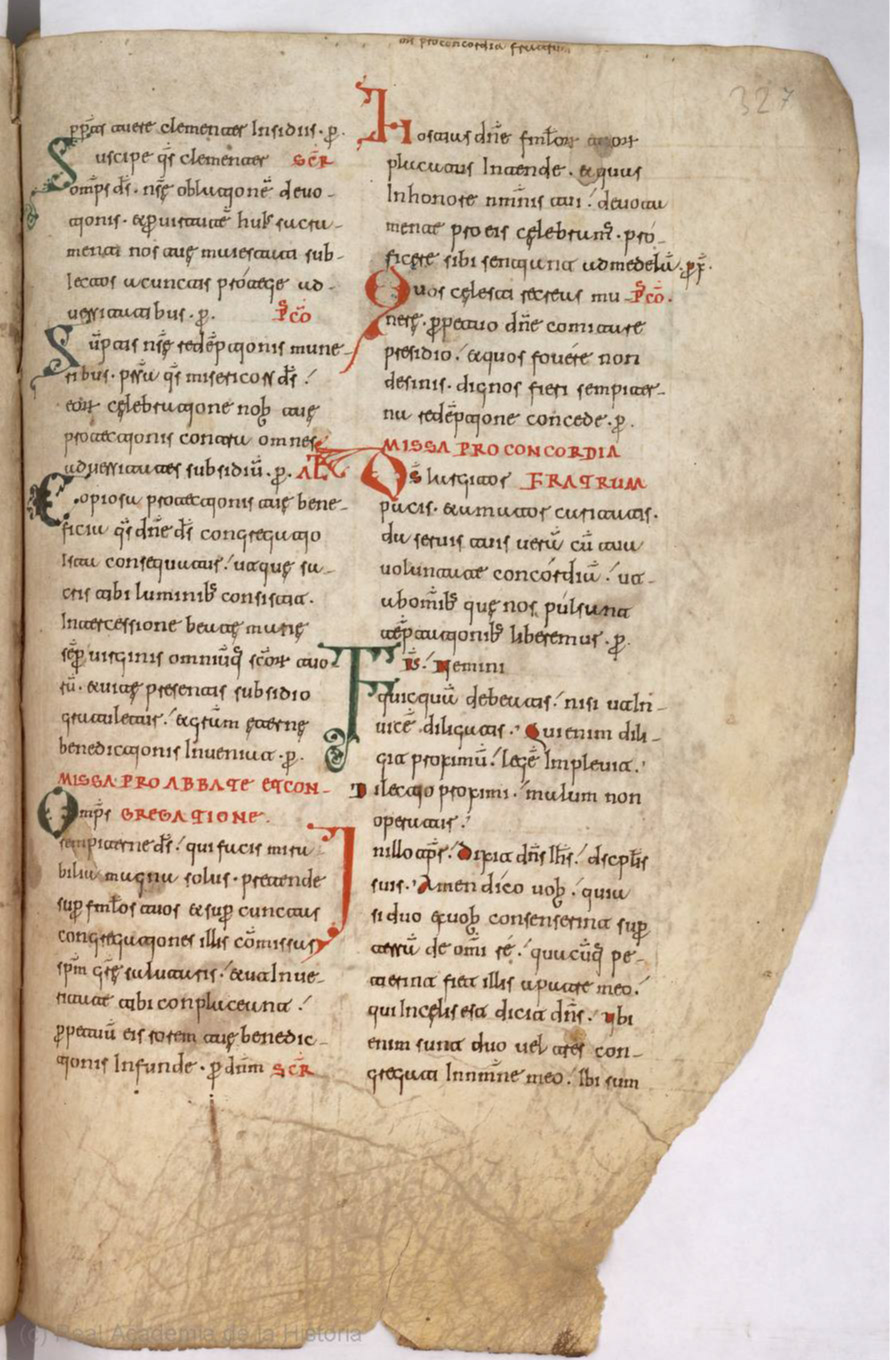 pro concordia fratrum
327
ppr̄as auere clementer Insidiis · p̱.
Suscipe q̄s clementer sēcr̄
omp̄s ds̄ · nr̄e oblationē deuo-
tionis · & ꝑ uirtutē huiꝰ sacra-
menti nos a tuę maiestati sub-
lectos a cunctis protege ad-
uersitatibus · p̱. P̄cō
Sūptis nr̄ę redēptionis mune-
ribus · pr̄a q̄s misericors ds̄ ·
eor̄ cęlebratione nob̄ tuę
protectionis contra omnes
aduersitates subsidiū · p̱. AL̄
Copiosa protectionis tuę bene-
ficia q̄s dn̄e ds̄ congregatio
ista consequatur · utque sa-
cris tibi luminib̄ consistit ·
Intercessione beatę marię
sēp̄ uirginis omniūq̄ sc̄or̄ tuo-
rū · & uitę presentis subsidio
gratuletur · & gr̄am ęternę
benedictionis Inueniat · p̱.
MISSA PRO ABBATE ET CON-
Omp̄s GREGATIONE ·
sempiterne ds̄ · qui facis mira-
bilia magna solus · pretende
sup̄ fml̄os tuos & sup̄ cunctas
congregationes illis cōmissas
sp̄m gr̄ę salutaris · & ut In ue-
ritate tibi conplaceant ·
ꝑpetuū eis rorem tuę benedic-
tionis Infunde · p̱ dn̄m sēcr̄
Hostias dn̄e fml̄or̄ tuor̄
placatus Intende · & quas
In honore nm̄inis tui · deuota
mente pro eis cęlebram̄ · pro-
ficere sibi sentiant ad medelā · p̱.
Quos cęlesti recreas mu- P̄cō ·
nere · ꝑpetuo dn̄e comitare
presidio · & quos fouére non
desinis · dignos fieri sempiter-
na redēptione concede · p̱.
MISSA PRO CONCORDIA
Ds̄ largitor FRATRUM
pacis · & amator caritatis ·
da seruis tuis uerā cū tua
voluntate concórdiā · ut
ab om̄ib̄ que nos púlsant
tēptationib̄ liberemur · p̱.
FR̄S · Nemini
quicquā debeatis · nisi ut In-
uicē diligatis · Qui enim dili-
git proximū · legē Impleuit ·
Dilectio proximi · malum non
operatur ·
In illo tp̄r · Dixit dn̄s Ih̄s · discpl̄is
suis · Amen dico uob̄ · quia
si duo ex uob̄ consenserint sup̄
terrā de om̄i rē · quacūq̄ pe-
tierint fiet illis a patre meo ·
qui In cęlis est dicit dn̄s · Vbi
enim sunt duo uel tres con-
gregati In nm̄ine meo · Ibi sum
(c) Real Academia de la Historia